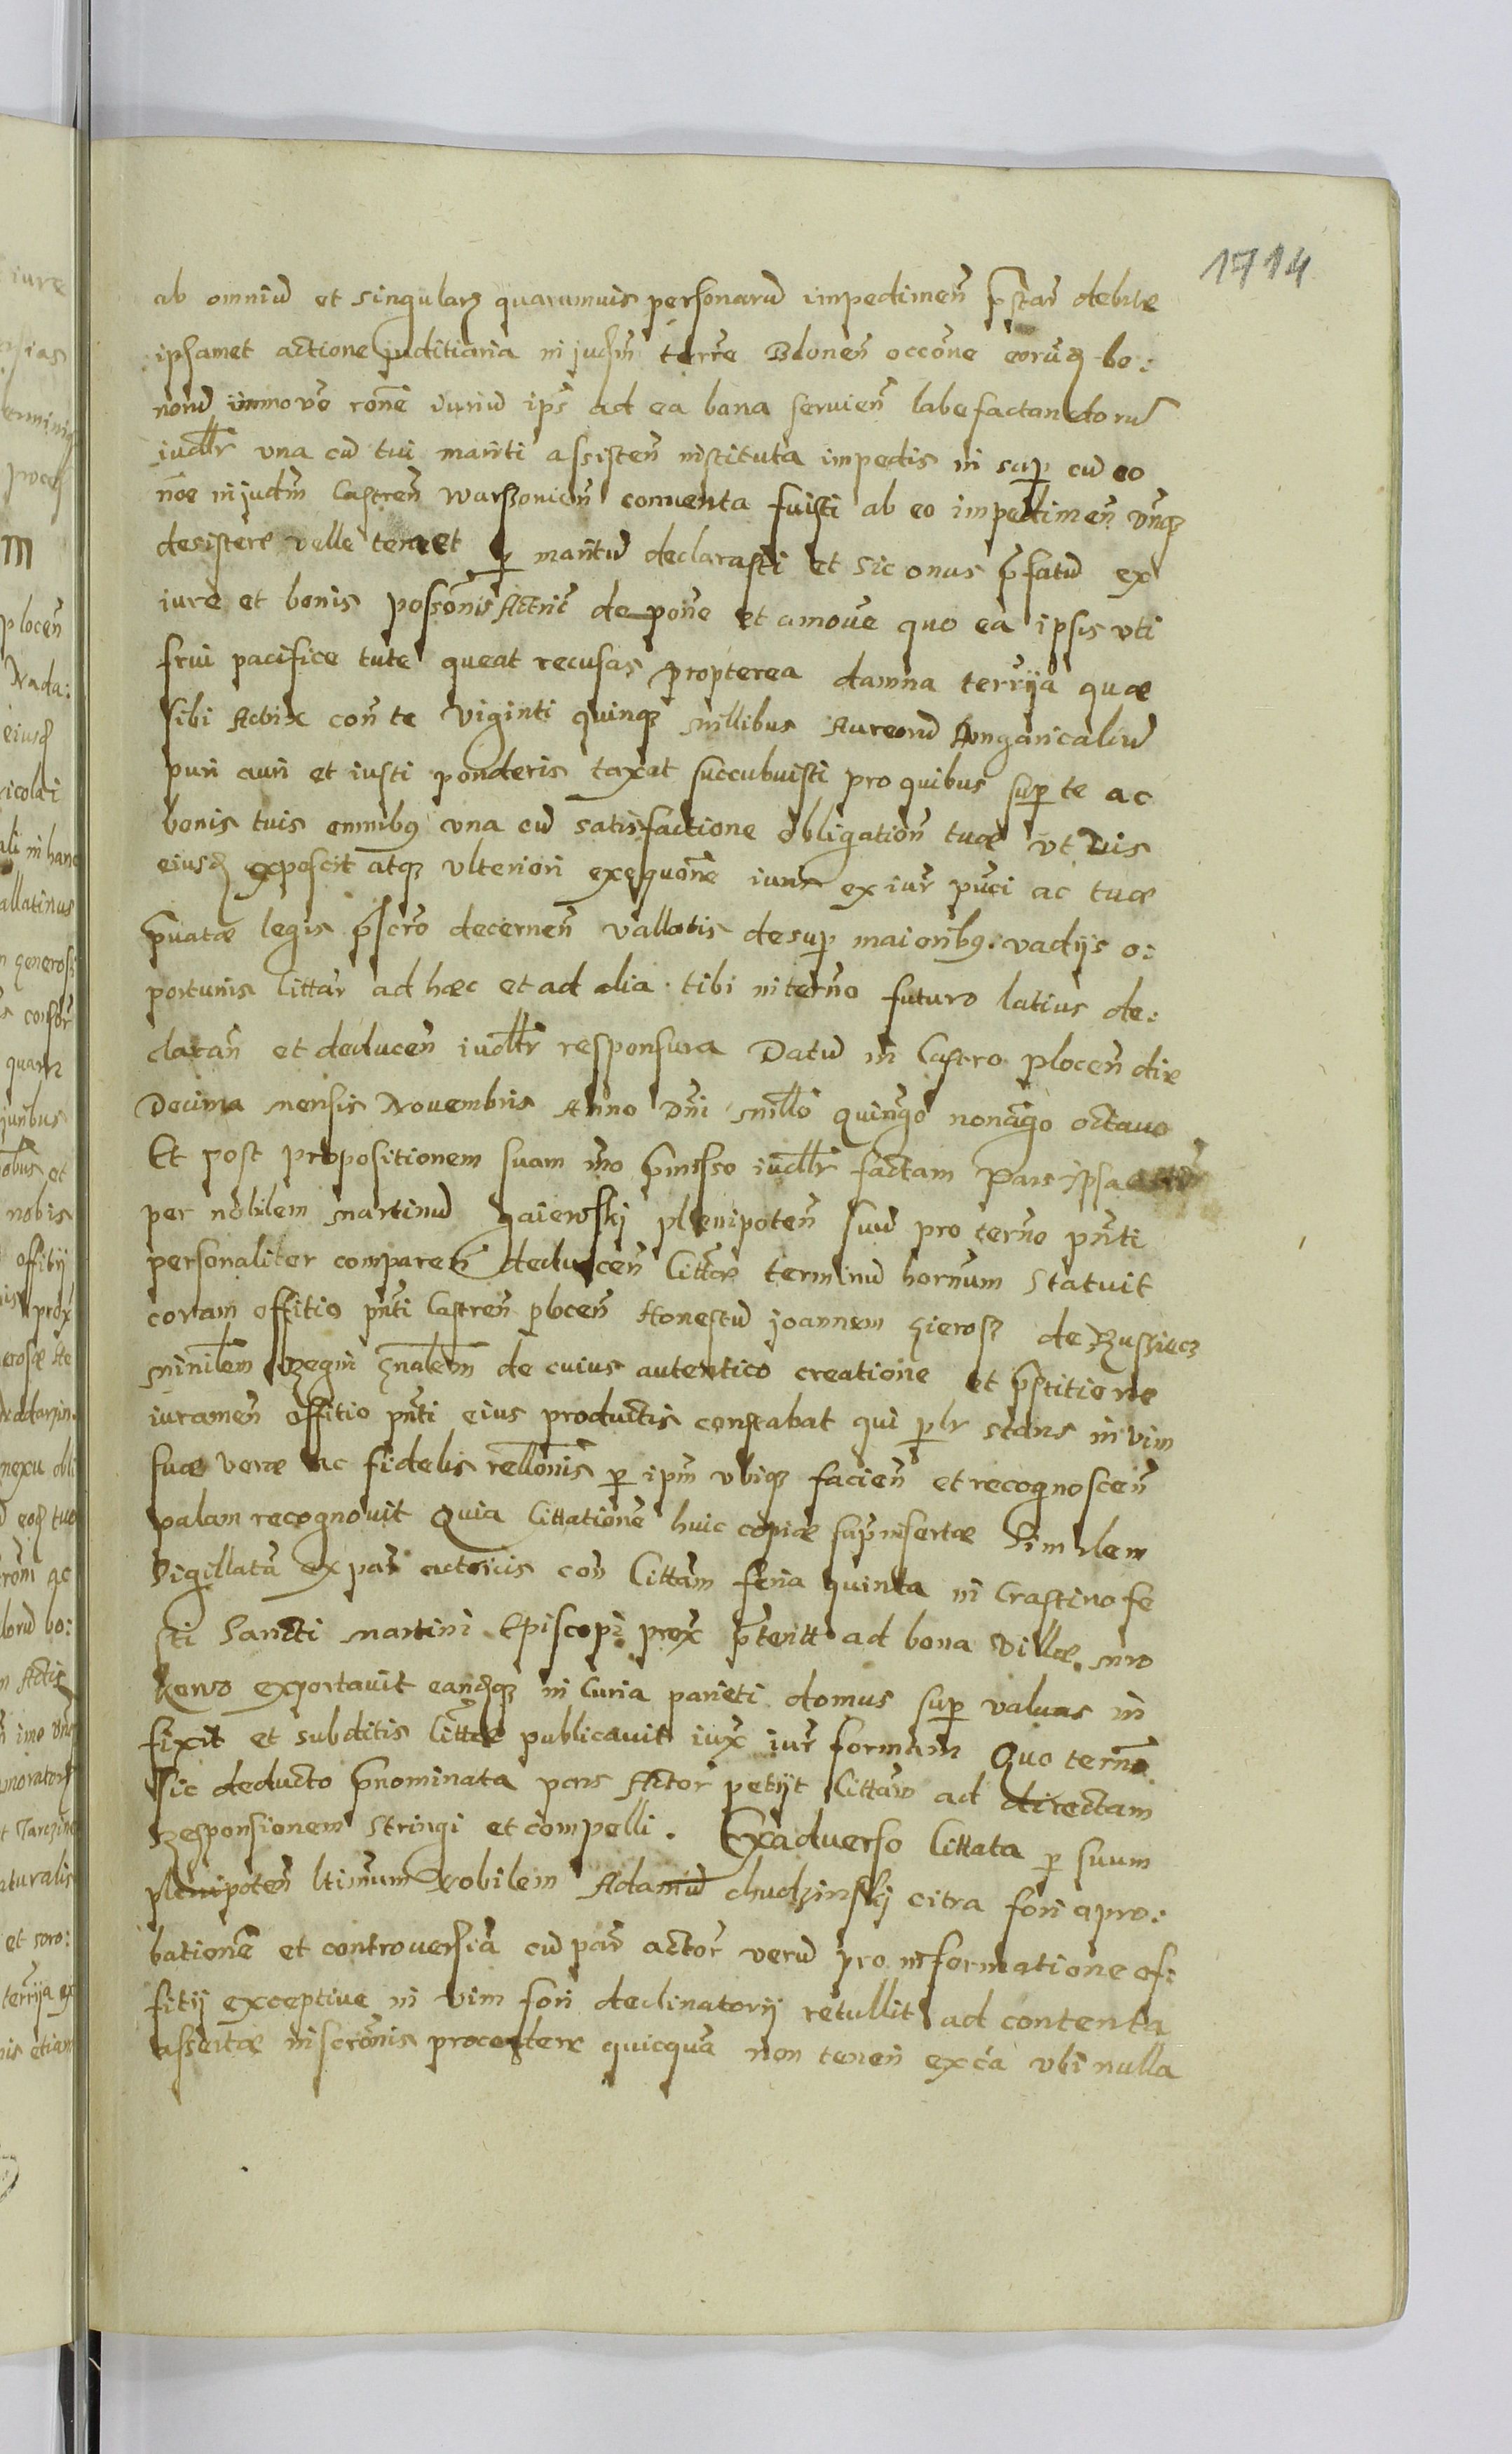 1714
ab omniū et singularꝫ quarumuis personarū impedimen̄ p̄stare debite
ipsamet actione juditiaria in jud̄m terre Blonen̄ occo̅ne eorūdꝫ bo:
norū immo vō ro̅ne iuriū ip̄s ad ea bona seruien̄ labefactandorū
iudl̄r vna cū tui mariti assisten̄ instituta impedis in sup̱ cū eo
no̅e in judm̄ Castren̄ Warszouien̄ conuenta fuisti ab eo impedimen̄ vnqꝫ
desistere velle te p̱ maritū declarasti et sic onus p̄fatū ex
iure et bonis posso̅nis Actric̄ de pone̅ et amoue̅ quo ea ipsis vti
frui pacifice tute queat recusas propterea damna terr̄ija quæ
sibi Actrix con̄ te viginti quinqꝫ millibus Aureorū Hungaricaliū
puri auri et iusti ponderis taxat succubuisti pro quibus sup̱ te ac
bonis tuis omnibꝰ vna cū satisfactione obligation̄ tuæ vt vis
eiusdꝫ exposcit atqꝫ vlteriori exequo̅ne iuris ex iur̄ pu̅ci ac tuæ
p̄uatæ legis p̄scr̄o decernen̄ vallatis desup̱ maioribꝰ vadijs o:
portunis Cittar̄ ad hæc et ad alia tibi in ter̄no futuro latius de:
claran̄ et deducen̄ iudl̄r responsura Datū in Castro plocen̄ die
Decima mensis Nouembris Anno Dn̄i mill̄o quingo nonāgo octauo
Et post propositionem suam m̄o p̄misso iudl̄r factam Pars ipsa
per nobilem Martinū Gaiewskj plenipoten̄ suū pro ter̄no pn̄ti
personaliter comparen̄ deducen̄ Cittæ terminū hornum Statuit
coram offitio pn̄ti Castren̄ plocen̄ Honestū joannem Gierosz de Russiecz
minilem Regni Gn̄alem de cuius autentico creatione et p̄stitione
iuramen̄ offitio pn̄ti eius productis constabat qui p̱lr stans in vim
suæ veræ ac fidelis rello̅nis p̱ ipm̄ vbiqꝫ facien̄ et recognoscen̄
palam recognouit Quia Cittatione̅ huic copiæ sup̱insertæ Similem
Sigillatā ex par̄ actoricis con̄ Cittam feria quinta in Crastino fe
sti Sancti Martini Episcopi prox̄ p̄teritt ad bona Villæ Mro
kowo exportauit eandꝫqꝫ in Curia parieti domus sup̱ valuas in
fixit et subditis Cittæ publicauit iux̄ iur̄ formam Quo ter̄no
Sic deducto p̄nominata pars Actor̄ petijt Cittam ad directam
Responsionem Stringi et compelli. Exaduerso Cittata p̱ suum
plenipoten̄ ltimum Nobilem Adamū chudzinskj citra fori apro:
bationē et controuersiā cū par̄ actor̄ verū pro informatione of:
fitij exceptiue in vim fori declinatorij retullit ad contenta
assertæ inscro̅nis procedere quicquā non tenen̄ ex ca̅ vbi nulla